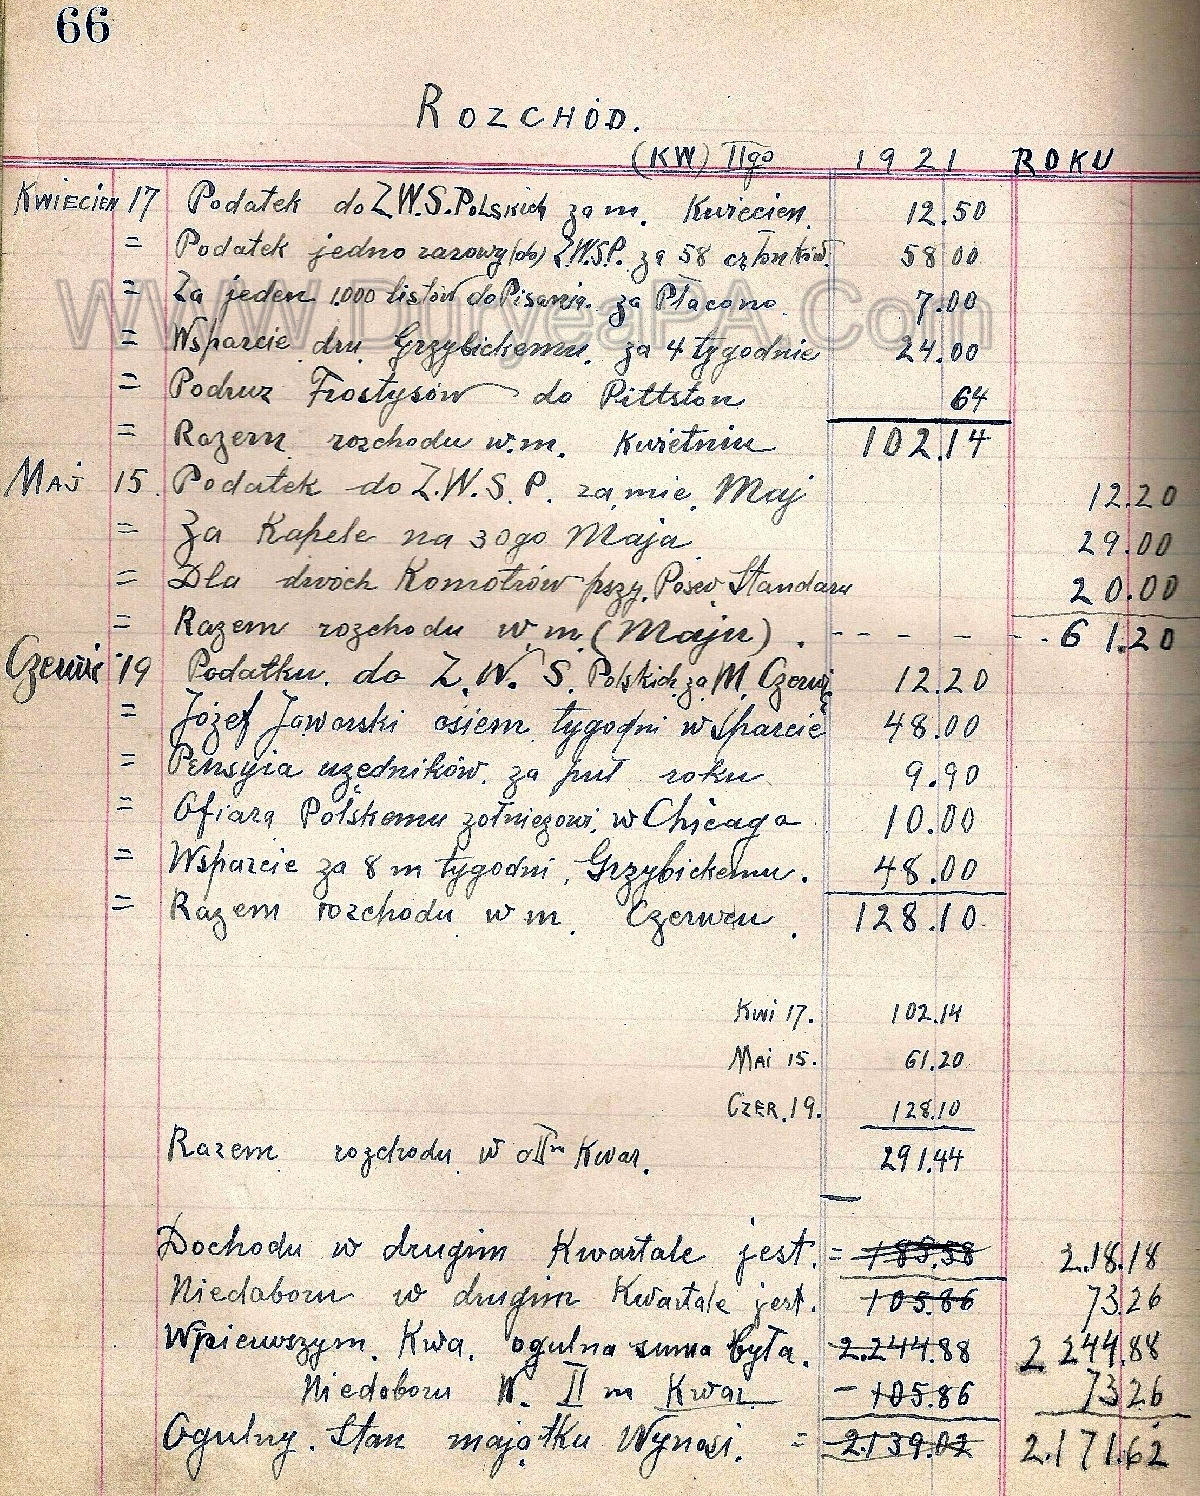 66
ROZCHÓD.
(KW) IIgo 1921 ROKU
KWIECIEN 17 Podatek do Z.W.S. Polskich za m. Kwiecien 12.50
= Podatek jedno razowy (do) Z.W.S.P. za 58 członków 58 00
= Za jeden 1.000 listów do Pisania. za Płacono 7.00
= Wsparcie dru. Grzybickemu. za 4 tygodnie 24.00
= Podruz Frostysów do Pittston 64
= Razem rozchodu w.m. Kwietniu 102.14
MAJ 15. Podatek do Z.W.S.P. za mie. Maj 12.20
= Za Kapele na 30go Maja 29.00
= Dla dwóch Komotrów przy. Posw. Standaru 20.00
= Razem rozchodu w m (Maju) . - - - - - - . 61.20
Czerwi 19 Podatku. do Z.W.S. Polskich za M. Czerwi 12.20
= Józef Jaworski osiem tygodni wsparcie 48.00
= Pensyia uzedników. za puł roku 9.90
= Ofiara Polskemu zołniezowi, w Chicago 10.00
= Wsparcie za 8 m tygodni, Grzybickemu. 48.00
= Razem rozchodu w m. Czerwcu . 128.10
Kwi 17. 102.14
Mai 15. 61.20
CZER. 19. 128.10
Razem rozchodu w IIm Kwar. 291.44
Dochodu w drugim Kwartale jest. = 185.58 2.18.18
Niedoboru w drugim Kwartale jest. 105.86 73.26
Wpierwszym. Kwa. ogulna suma była. 2.244.88 2 244.88
Niedoboru W. II m Kwar - 105.86 73 26
Ogulny. Stan majątku Wynosi. = 2.139.02 2.171.62
WWW.DuryeaPA.Com